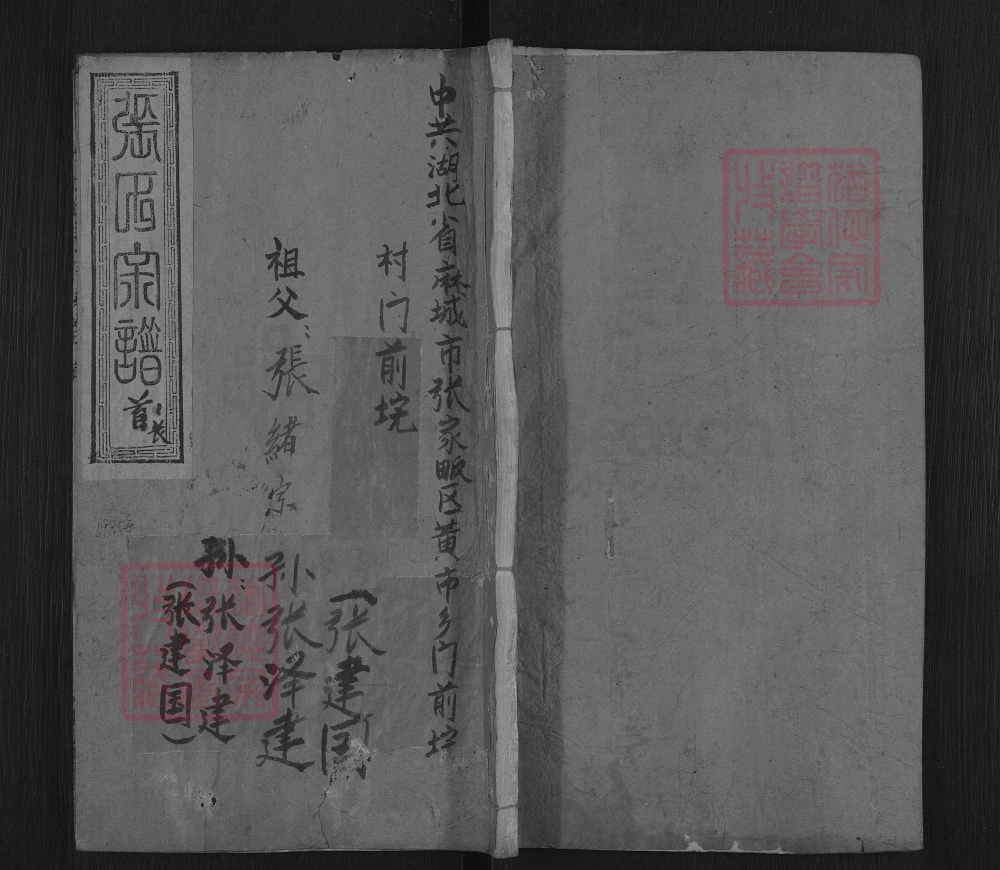 中共湖北省麻城市张家畈区黄市乡门前垸
村门前垸
祖父：張緒宗
(张建国)
孙张泽建
孙：张泽建
(张建国)
張氏宗譜
首
长
猶他家
譜學會
收藏